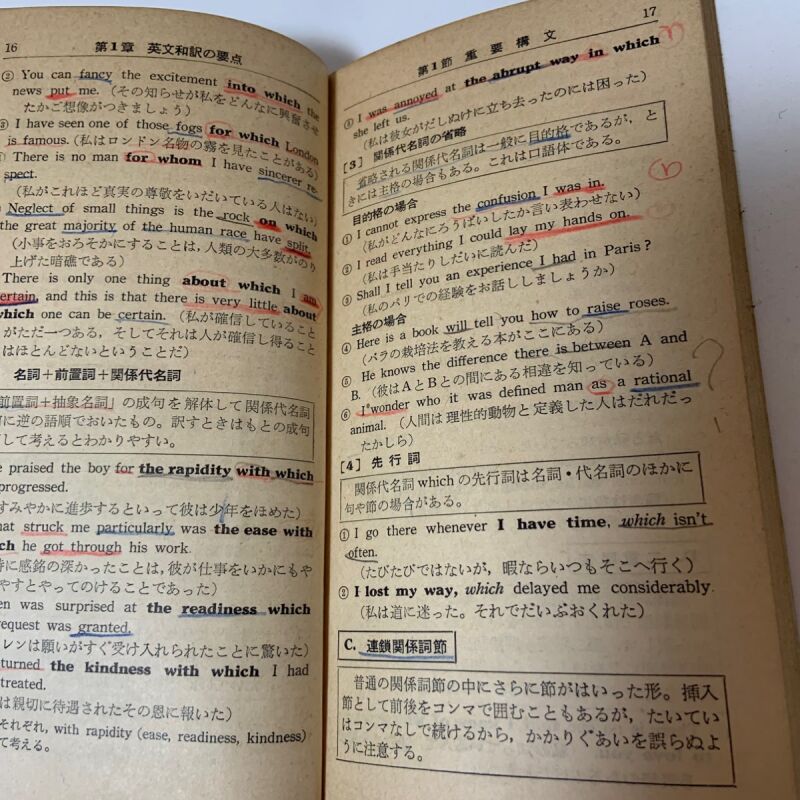 16 第1章 英文和訳の要点
② You can fancy the excitement into which the
news put me. (その知らせが私をどんなに興奮させ
たかご想像がつきましょう)
③ I have seen one of those fogs for which London
is famous. (私はロンドン名物の霧を見たことがある)
There is no man for whom I have sincerer re-
spect.
(私がこれほど真実の尊敬をいだいている人はない)
Neglect of small things is the rock on which
the great majority of the human race have split.
(小事をおろそかにすることは，人類の大多数がのり
上げた暗礁である)
There is only one thing about which I am
certain, and this is that there is very little about
which one can be certain. (私が確信していること
がただ一つある，そしてそれは人が確信し得ること
はほとんどないということだ)
名詞＋前置詞＋関係代名詞
前置詞＋抽象名詞」の成句を解体して関係代名詞
に逆の語順でおいたもの。訳すときはもとの成句
して考えるとわかりやすい。
praised the boy for the rapidity with which
progressed.
すみやかに進歩するといって彼は少年をほめた)
What struck me particularly was the ease with
which he got through his work.
特に感銘の深かったことは，彼が仕事をいかにもや
やすとやってのけることであった)
en was surprised at the readiness which
request was granted.
レンは願いがすぐ受け入れられたことに驚いた)
turned the kindness with which I had
treated.
は親切に待遇されたその恩に報いた)
それぞれ, with rapidity (ease, readiness, kindness)
て考える。
第1節 重要構文 17
⑧ I was annoyed at the abrupt way in which
she left us.
(私は彼女がだしぬけに立ち去ったのには困った)
[3] 関係代名詞の省略
省略される関係代名詞は一般に目的格であるが，と
きには主格の場合もある。これは口語体である。
目的格の場合
① I cannot express the confusion I was in.
(私がどんなにろうばいしたか言い表わせない)
② I read everything I could lay my hands on.
(私は手当たりしだいに読んだ)
③ Shall I tell you an experience I had in Paris?
(私のパリでの経験をお話ししましょうか)
主格の場合
④ Here is a book will tell you how to raise roses.
(バラの栽培法を教える本がここにある)
⑤ He knows the difference there is between A and
B. (彼はAとBとの間にある相違を知っている)
⑥ I wonder who it was defined man as a rational
animal. (人間は理性的動物と定義した人はだれだっ
たかしら)
?
[4] 先行詞
関係代名詞 which の先行詞は名詞・代名詞のほかに
句や節の場合がある。
① I go there whenever I have time, which isn't
often.
(たびたびではないが，暇ならいつもそこへ行く)
② I lost my way, which delayed me considerably.
(私は道に迷った。それでだいぶおくれた)
C. 連鎖関係詞節
普通の関係詞節の中にさらに節がはいった形。挿入
節として前後をコンマで囲むこともあるが，たいてい
はコンマなしで続けるから，かかりぐあいを誤らぬよ
うに注意する。